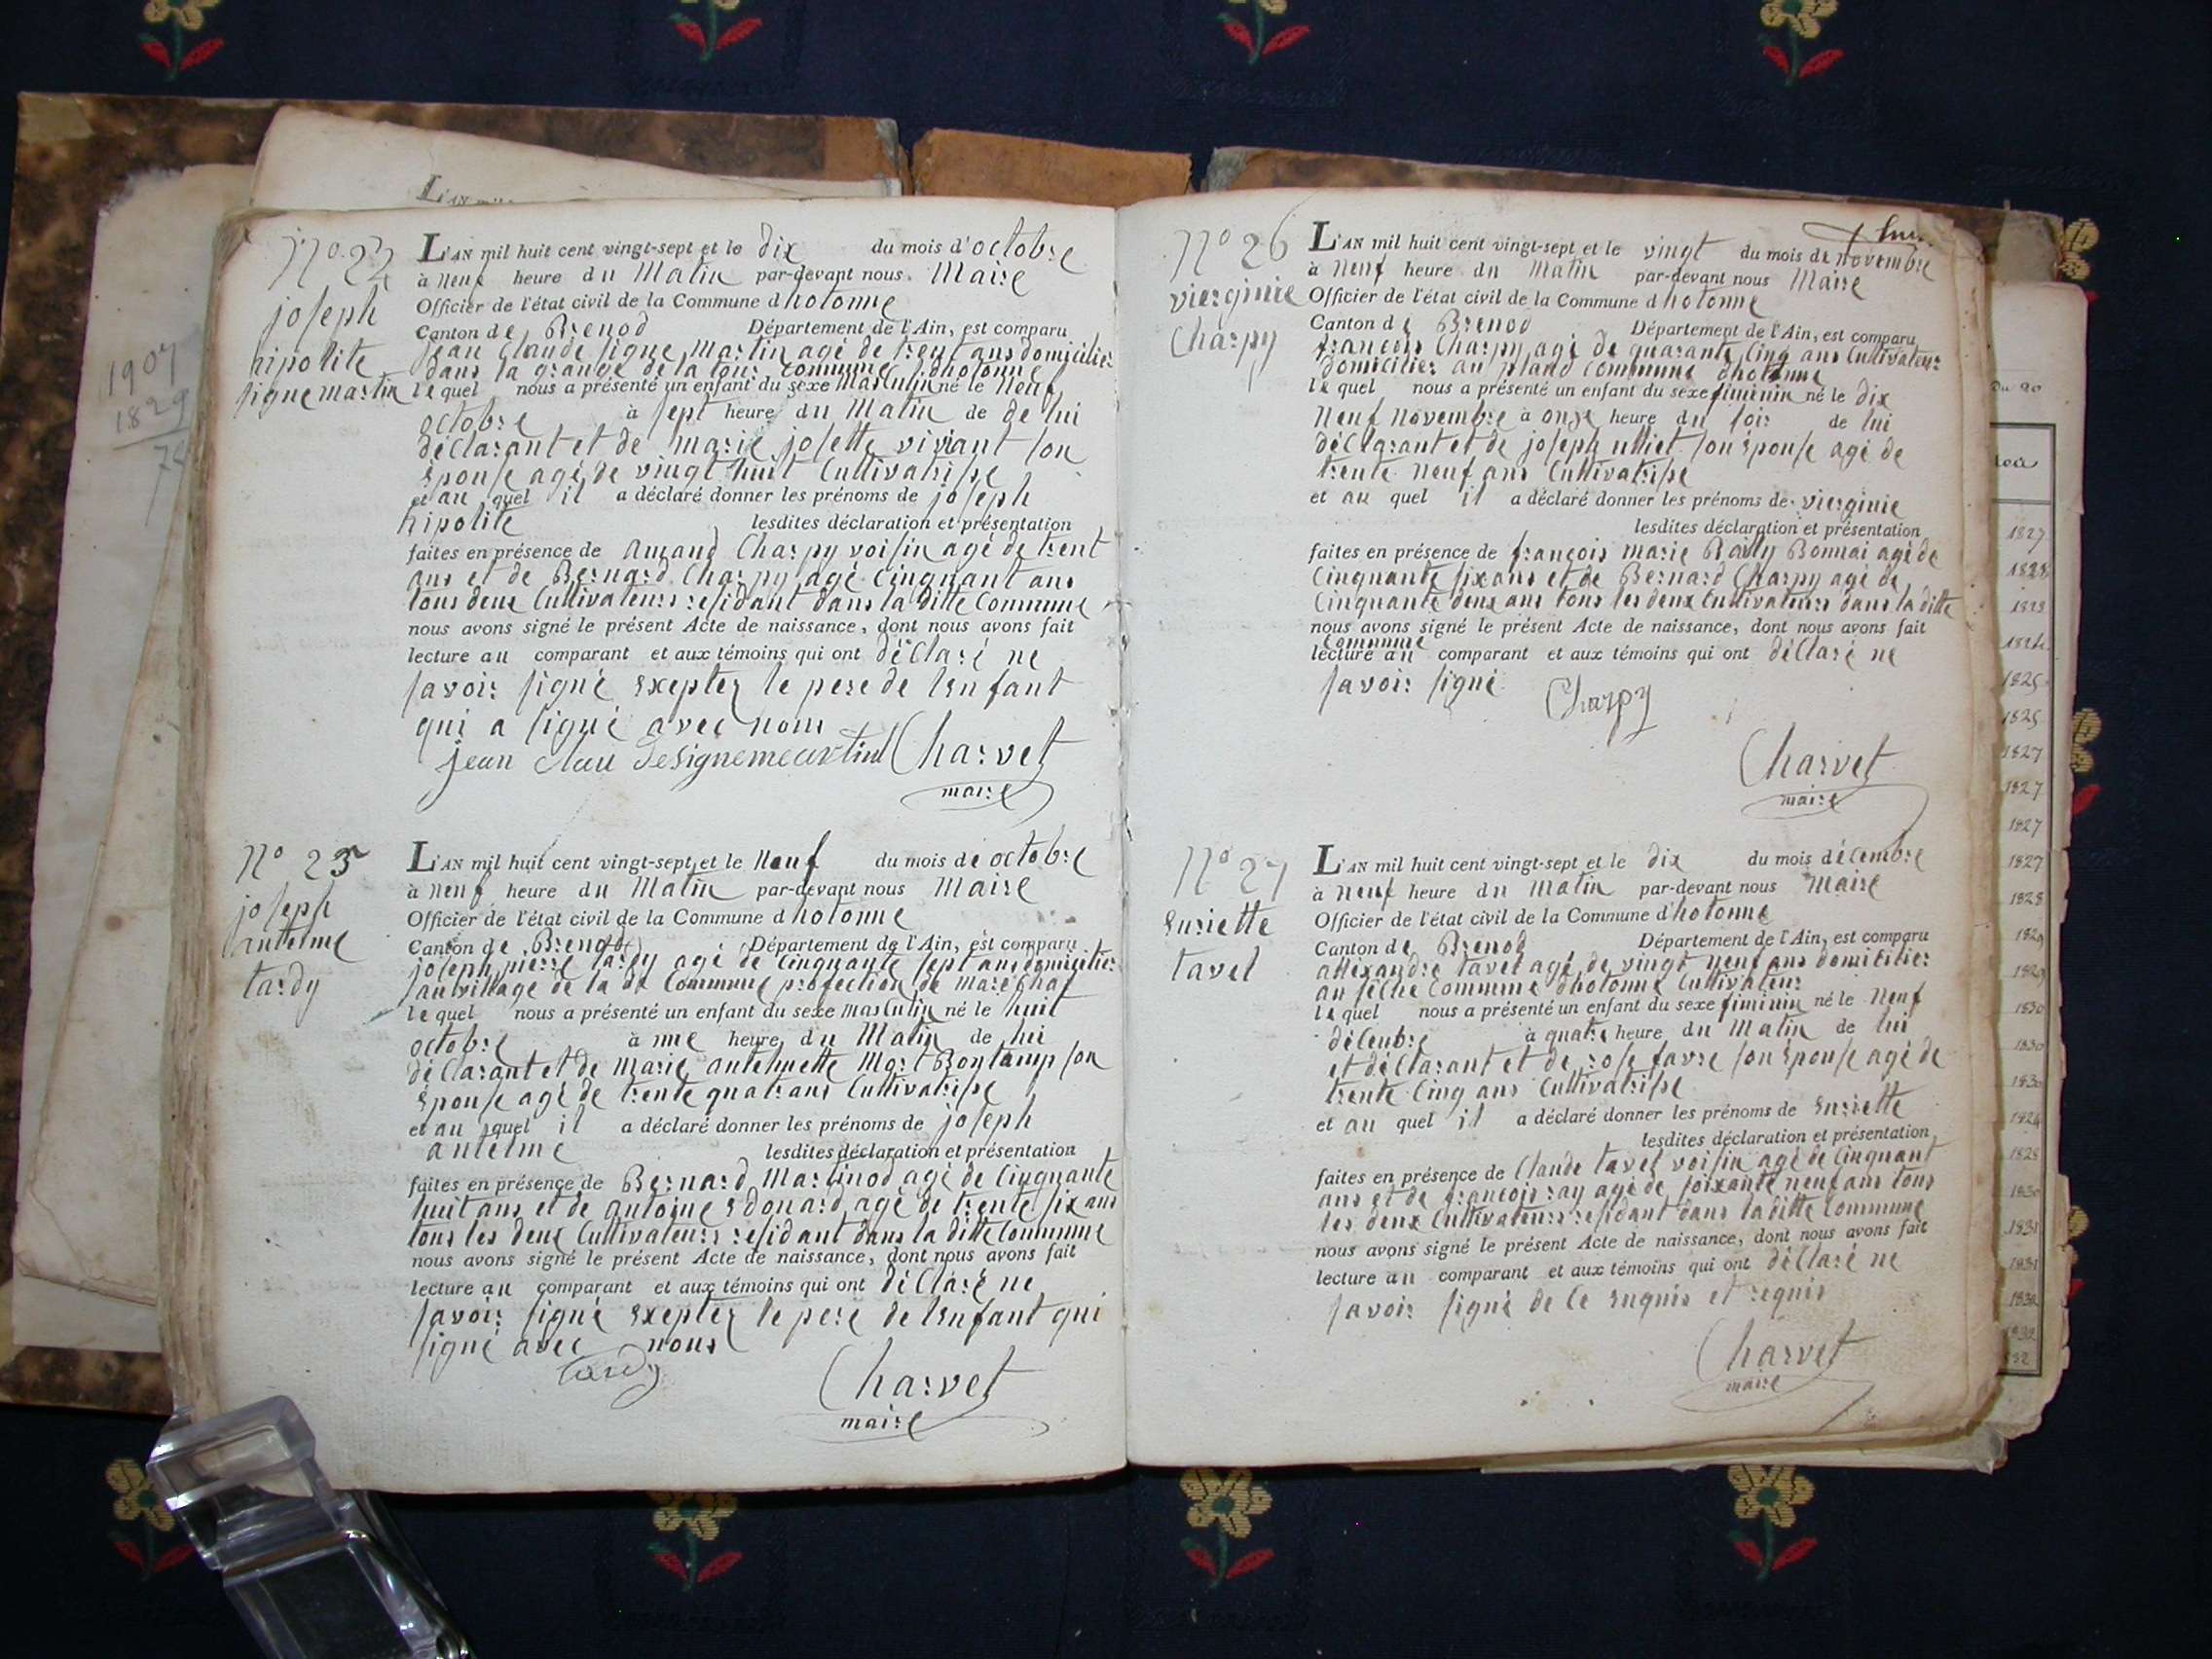 1907
1829
L'AN
N° 24
joseph
hipolite
signemartin
L'AN mil huit cent vingt-sept et le dix du mois d'octobre
à neuf heure du Matin par-devant nous Maire
Officier de l'état civil de la Commune d hotonne
Canton de Brenod Département de l'Ain, est comparu
jean Claude signe Martin agé de trent ans domicilier
dans la grange de la tour commune dhotonne
lequel nous a présenté un enfant du sexe masculin né le neuf
octobre à sept heure du Matin de de lui
déclarant et de marie josette viviant son
épouse agé de vingt huit Cultivatrisse
et au quel il a déclaré donner les prénoms de joseph
hipolite lesdites déclaration et présentation
faites en présence de amand Charpy voisin agé de trent
ans et de Bernard Charpy agé Cinquant ans
tous deux Cultivateurs residant dans la ditte Commune
nous avons signé le présent Acte de naissance, dont nous avons fait
lecture au comparant et aux témoins qui ont déclaré ne
savoir signé exepter le pere de lenfant
qui a signé avec nous
jean clau designemartin Charvet
maire
N° 25
joseph
antelme
tardy
L'AN mil huit cent vingt-sept et le neuf du mois de octobre
à neuf heure du Matin par-devant nous Maire
Officier de l'état civil de la Commune d hotonne
Canton de Brenod Département de l'Ain, est comparu
joseph pierre tardy agé de Cinquante sept ans domicilier
au village de la dt Commune profection de marechal
lequel nous a présenté un enfant du sexe masculin né le huit
octobre à une heure du Matin de lui
déclarant et de Marie antelmette Mort Bontamp son
épouse agé de trente quatrans Cultivatrisse
et au quel il a déclaré donner les prénoms de joseph
antelme lesdites déclaration et présentation
faites en présence de Bernard Martinod agé de Cinquante
huit ans et de antoine Edouard agé de trente six ans
tous les deux Cultivateurs residant dans la ditte Commune
nous avons signé le présent Acte de naissance, dont nous avons fait
lecture au comparant et aux témoins qui ont déclaré ne
savoir signé exepter le pere de lenfant qui
signé avec nous
tardy Charvet
maire
N° 26
vierginie
Charpy
L'AN mil huit cent vingt-sept et le vingt du mois de novembre
à neuf heure du Matin par-devant nous Maire
Officier de l'état civil de la Commune d hotonne
Canton de Brenod Département de l'Ain, est comparu
francois Charpy agé de quarante Cinq ans Cultivateur
domicilier au pland Commune dhotonne
lequel nous a présenté un enfant du sexe fiminin né le dix
neuf novembre à onze heure du soir de lui
déclarant et de joseph ulliet son épouse agé de
trente neuf ans Cultivatrisse
et au quel il a déclaré donner les prénoms de vierginie
lesdites déclaration et présentation
faites en présence de françois marie Bailly Bonnai agé de
Cinquante six ans et de Bernard Charpy agé de
Cinquante deux ans tous les deux Cultivateurs dans la ditte
nous avons signé le présent Acte de naissance, dont nous avons fait
Commune
lecture au comparant et aux témoins qui ont déclaré ne
savoir signé Charpy
Charvet
maire
N° 27
Enriette
tavel
L'AN mil huit cent vingt-sept et le dix du mois décembre
à neuf heure du Matin par-devant nous Maire
Officier de l'état civil de la Commune d'hotonne
Canton de Brenod Département de l'Ain, est comparu
allexandre tavel agé de vingt neuf ans domicilier
au séche Commune dhotonne Cultivateur
lequel nous a présenté un enfant du sexe fiminin né le neuf
décenbre à quatre heure du Matin de lui
et déclarant et de rose favre son épouse agé de
trente Cinq ans Cultivatrisse
et au quel il a déclaré donner les prénoms de Enriette
lesdites déclaration et présentation
faites en présence de Claude tavel voisin agé de Cinquant
ans et de francois ray agé de soixante neuf ans tous
les deux Cultivateurs residant dans la ditte Commune
nous avons signé le présent Acte de naissance, dont nous avons fait
lecture au comparant et aux témoins qui ont déclaré ne
savoir signé de ce enquis et requis
Charvet
maire
du 20
1827
1828
1823
1824
1825
1825
1827
1827
1827
1827
1828
1829
1829
1830
1830
1830
1824
1828
1830
1831
1831
1832
1832